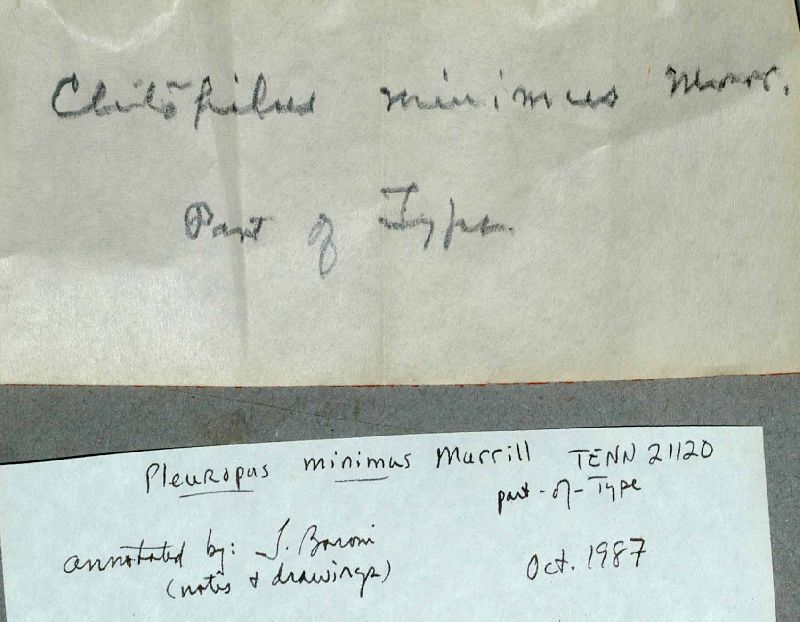 Clitopilus minimus Murr.
Part of Type.
Pleuropus minimus Murrill TENN 21120
part-of-Type
annotated by: T. Baroni Oct. 1987
(notes & drawings)